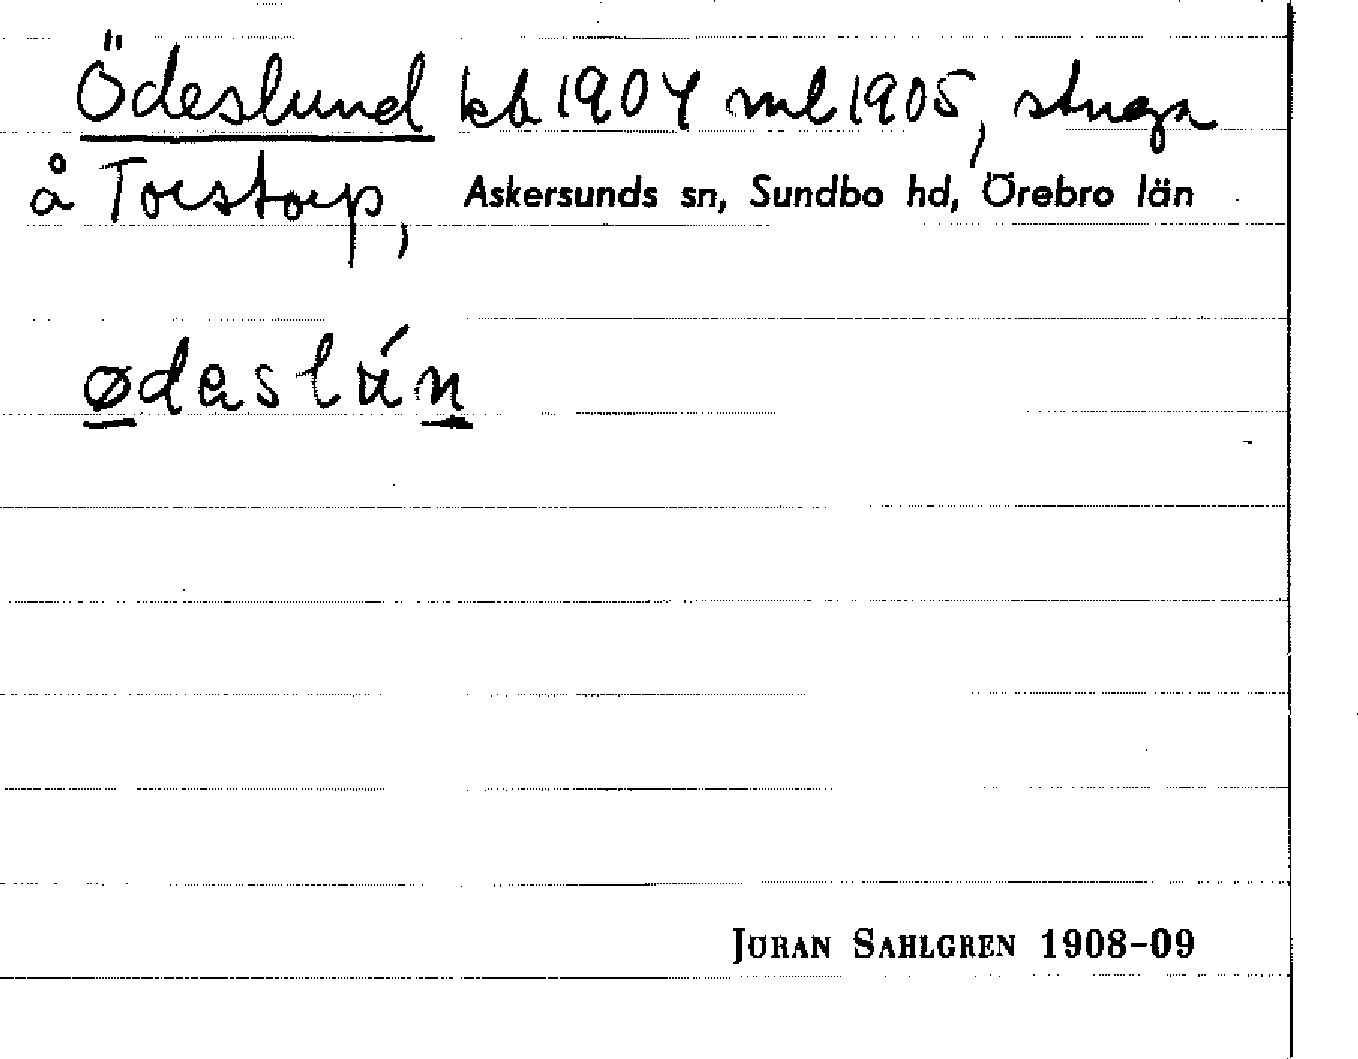 Ödeslund kb 1904 ml 1905, stuga
å Torstorp, Askersunds sn, Sundbo hd, Örebro län
ødaslún
JÖRAN SAHLGREN 1908-09